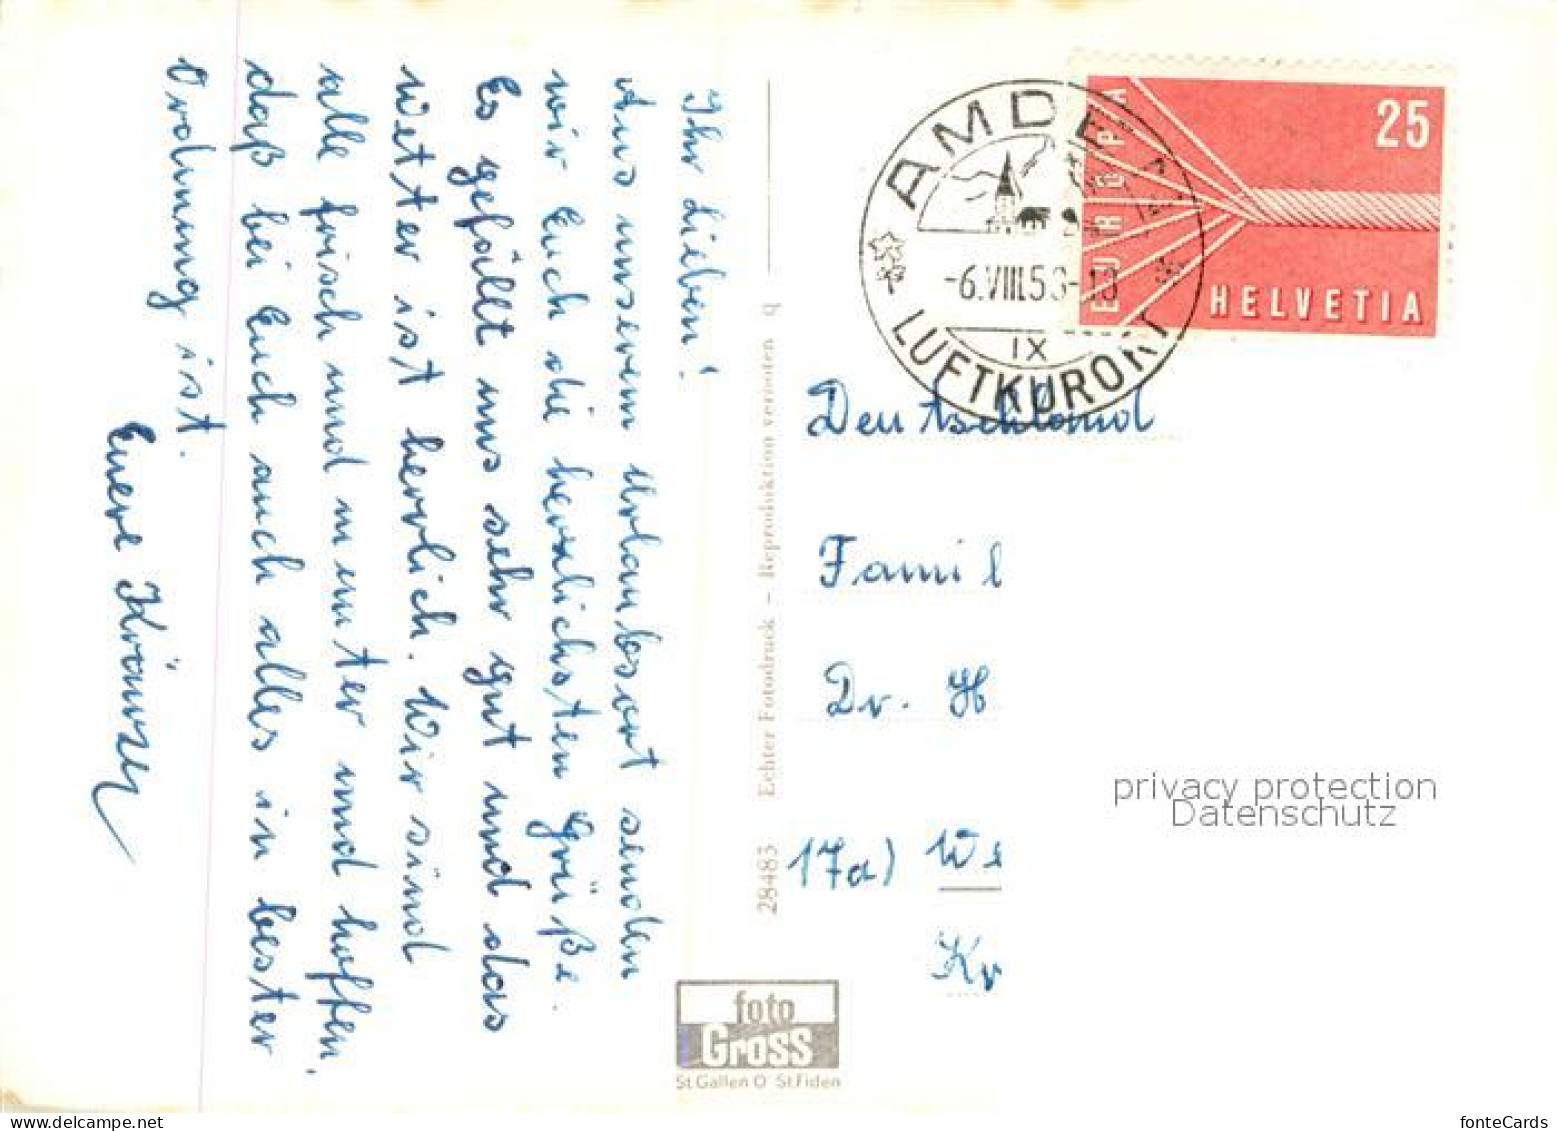 Ihr Lieben!
Aus unserem Urlaubsort senden
wir Euch die herzlichsten Grüße.
Es gefällt uns sehr gut und das
Wetter ist herrlich. Wir sind
alle frisch und munter und hoffen,
daß bei Euch auch alles in bester
Ordnung ist.
Euere
28483 Echter Fotodruck – Reproduktion verboten q
foto
Gross
St.Gallen O St.Fiden
AMDEN
-6.VIII.58-
IX
LUFTKURORT
EUROPA
25
HELVETIA
Deutschland
Famil
Dr. H
17a) We
Kr
privacy protection
Datenschutz
fonteCards